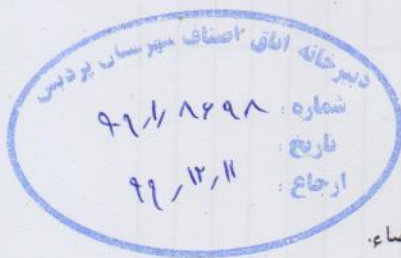 دبیرخانه اتاق اصناف شهرستان پردیس
شماره: ۹۹/۱/۸۶۹۸
تاریخ:
ارجاع: ۹۹/۱۲/۱۱